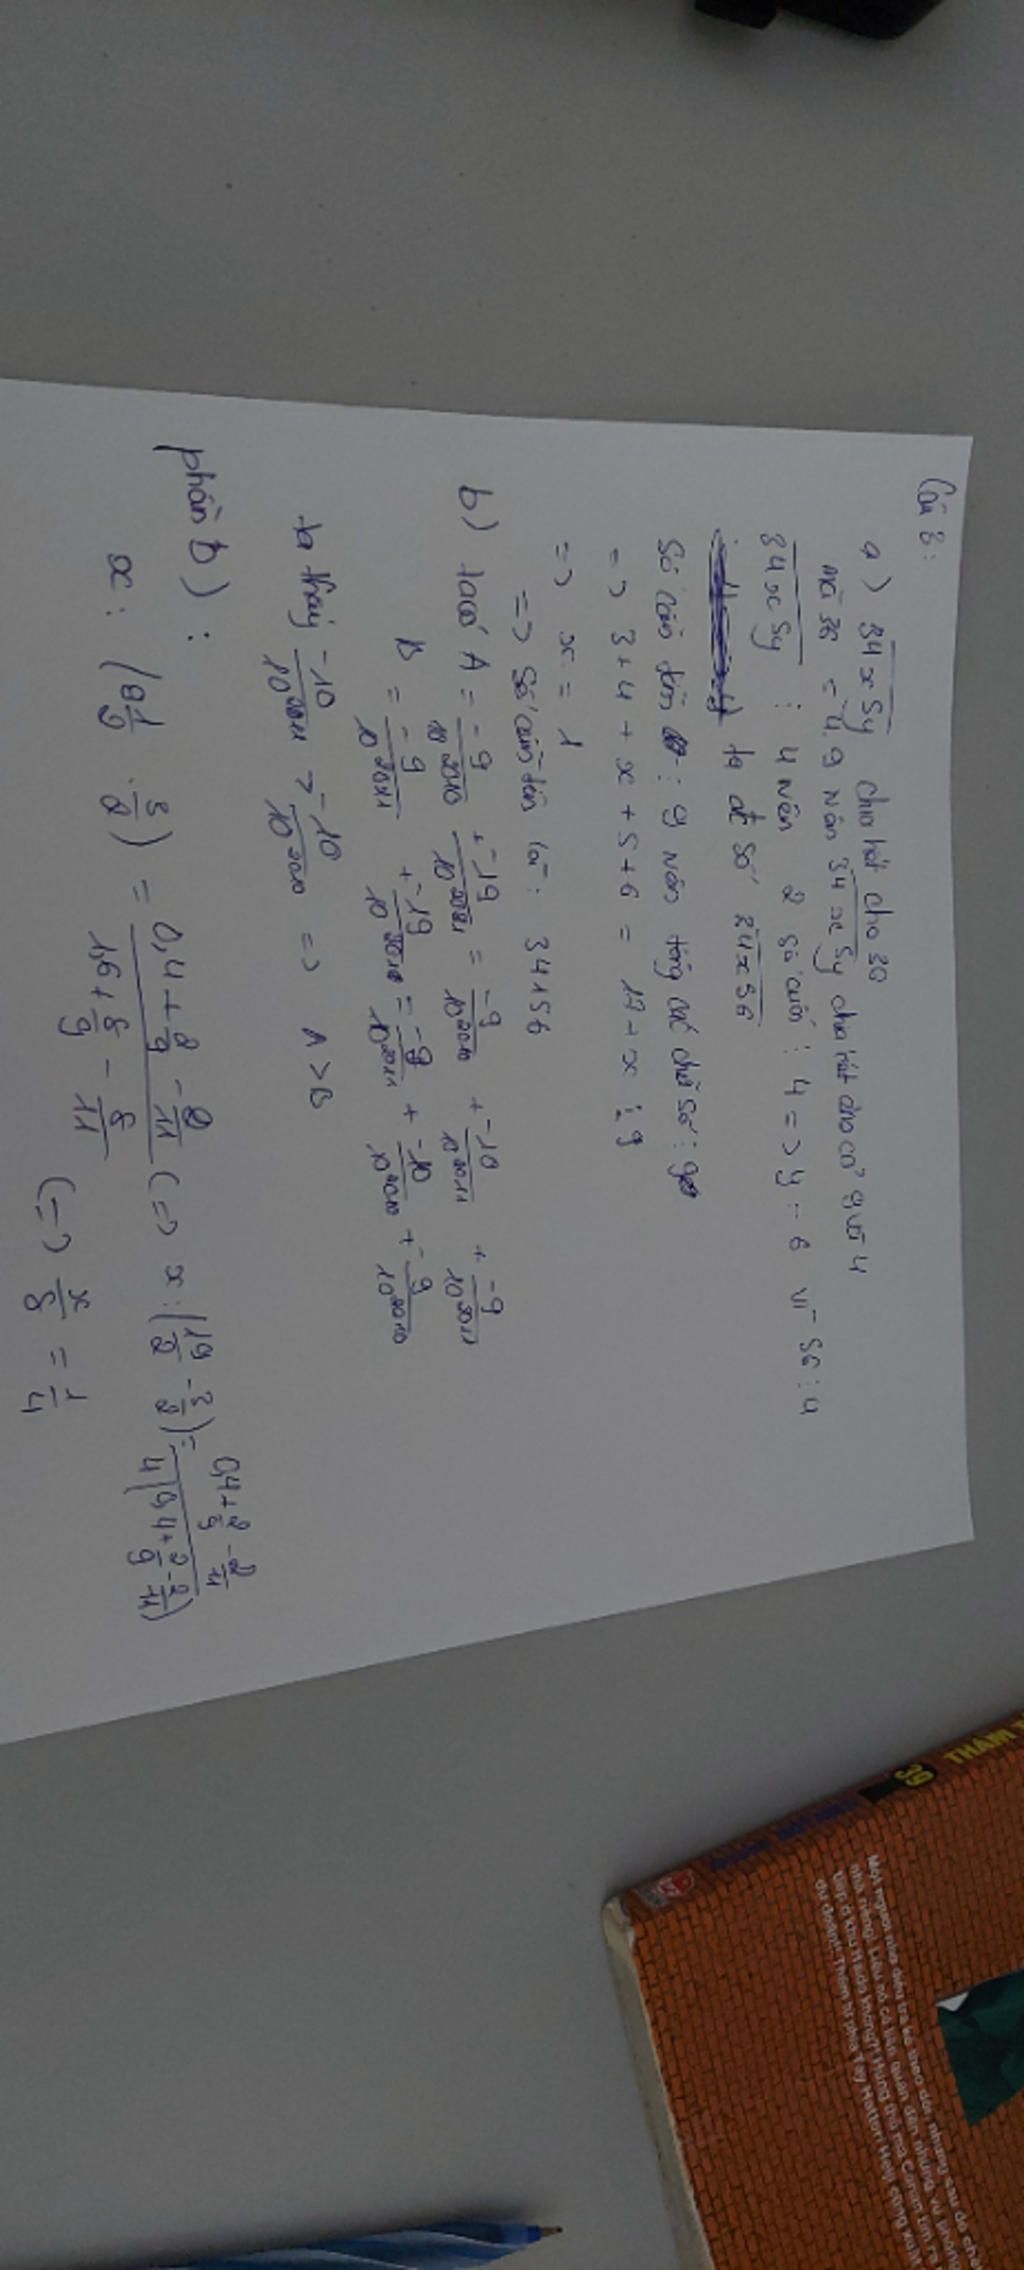 Câu 3:
a) 34x5y chia hết cho 36
mà 36 = 4.9 nên 34x5y chia hết cho cả 9 và 4
34x5y ⋮ 4 nên 2 số cuối ⋮ 4 => y = 6 vì 56 ⋮ 4
ta đc số 34x56
Số cần tìm ⋮ 9 nên tổng các chữ số ⋮ 9
=> 3+4+x+5+6 = 17+x ⋮ 9
=> x = 1
=> số cần tìm là: 34156
b) ta có A = -9/10^2010 + -19/10^2011 = -9/10^2010 + -10/10^2011 + -9/10^2011
B = -9/10^2011 + -19/10^2010 = -9/10^2011 + -10/10^2010 + -9/10^2010
ta thấy -10/10^2011 > -10/10^2010 => A > B
phần b) :
x : (9 1/2 . 3/2) = (0,4 + 2/9 - 2/11)/(1,6 + 8/9 - 8/11) (=> x : (19/2 - 3/2) = (0,4 + 2/9 - 2/11)/(4(0,4 + 2/9 - 2/11))
(=> x/8 = 1/4
39
THÁM T